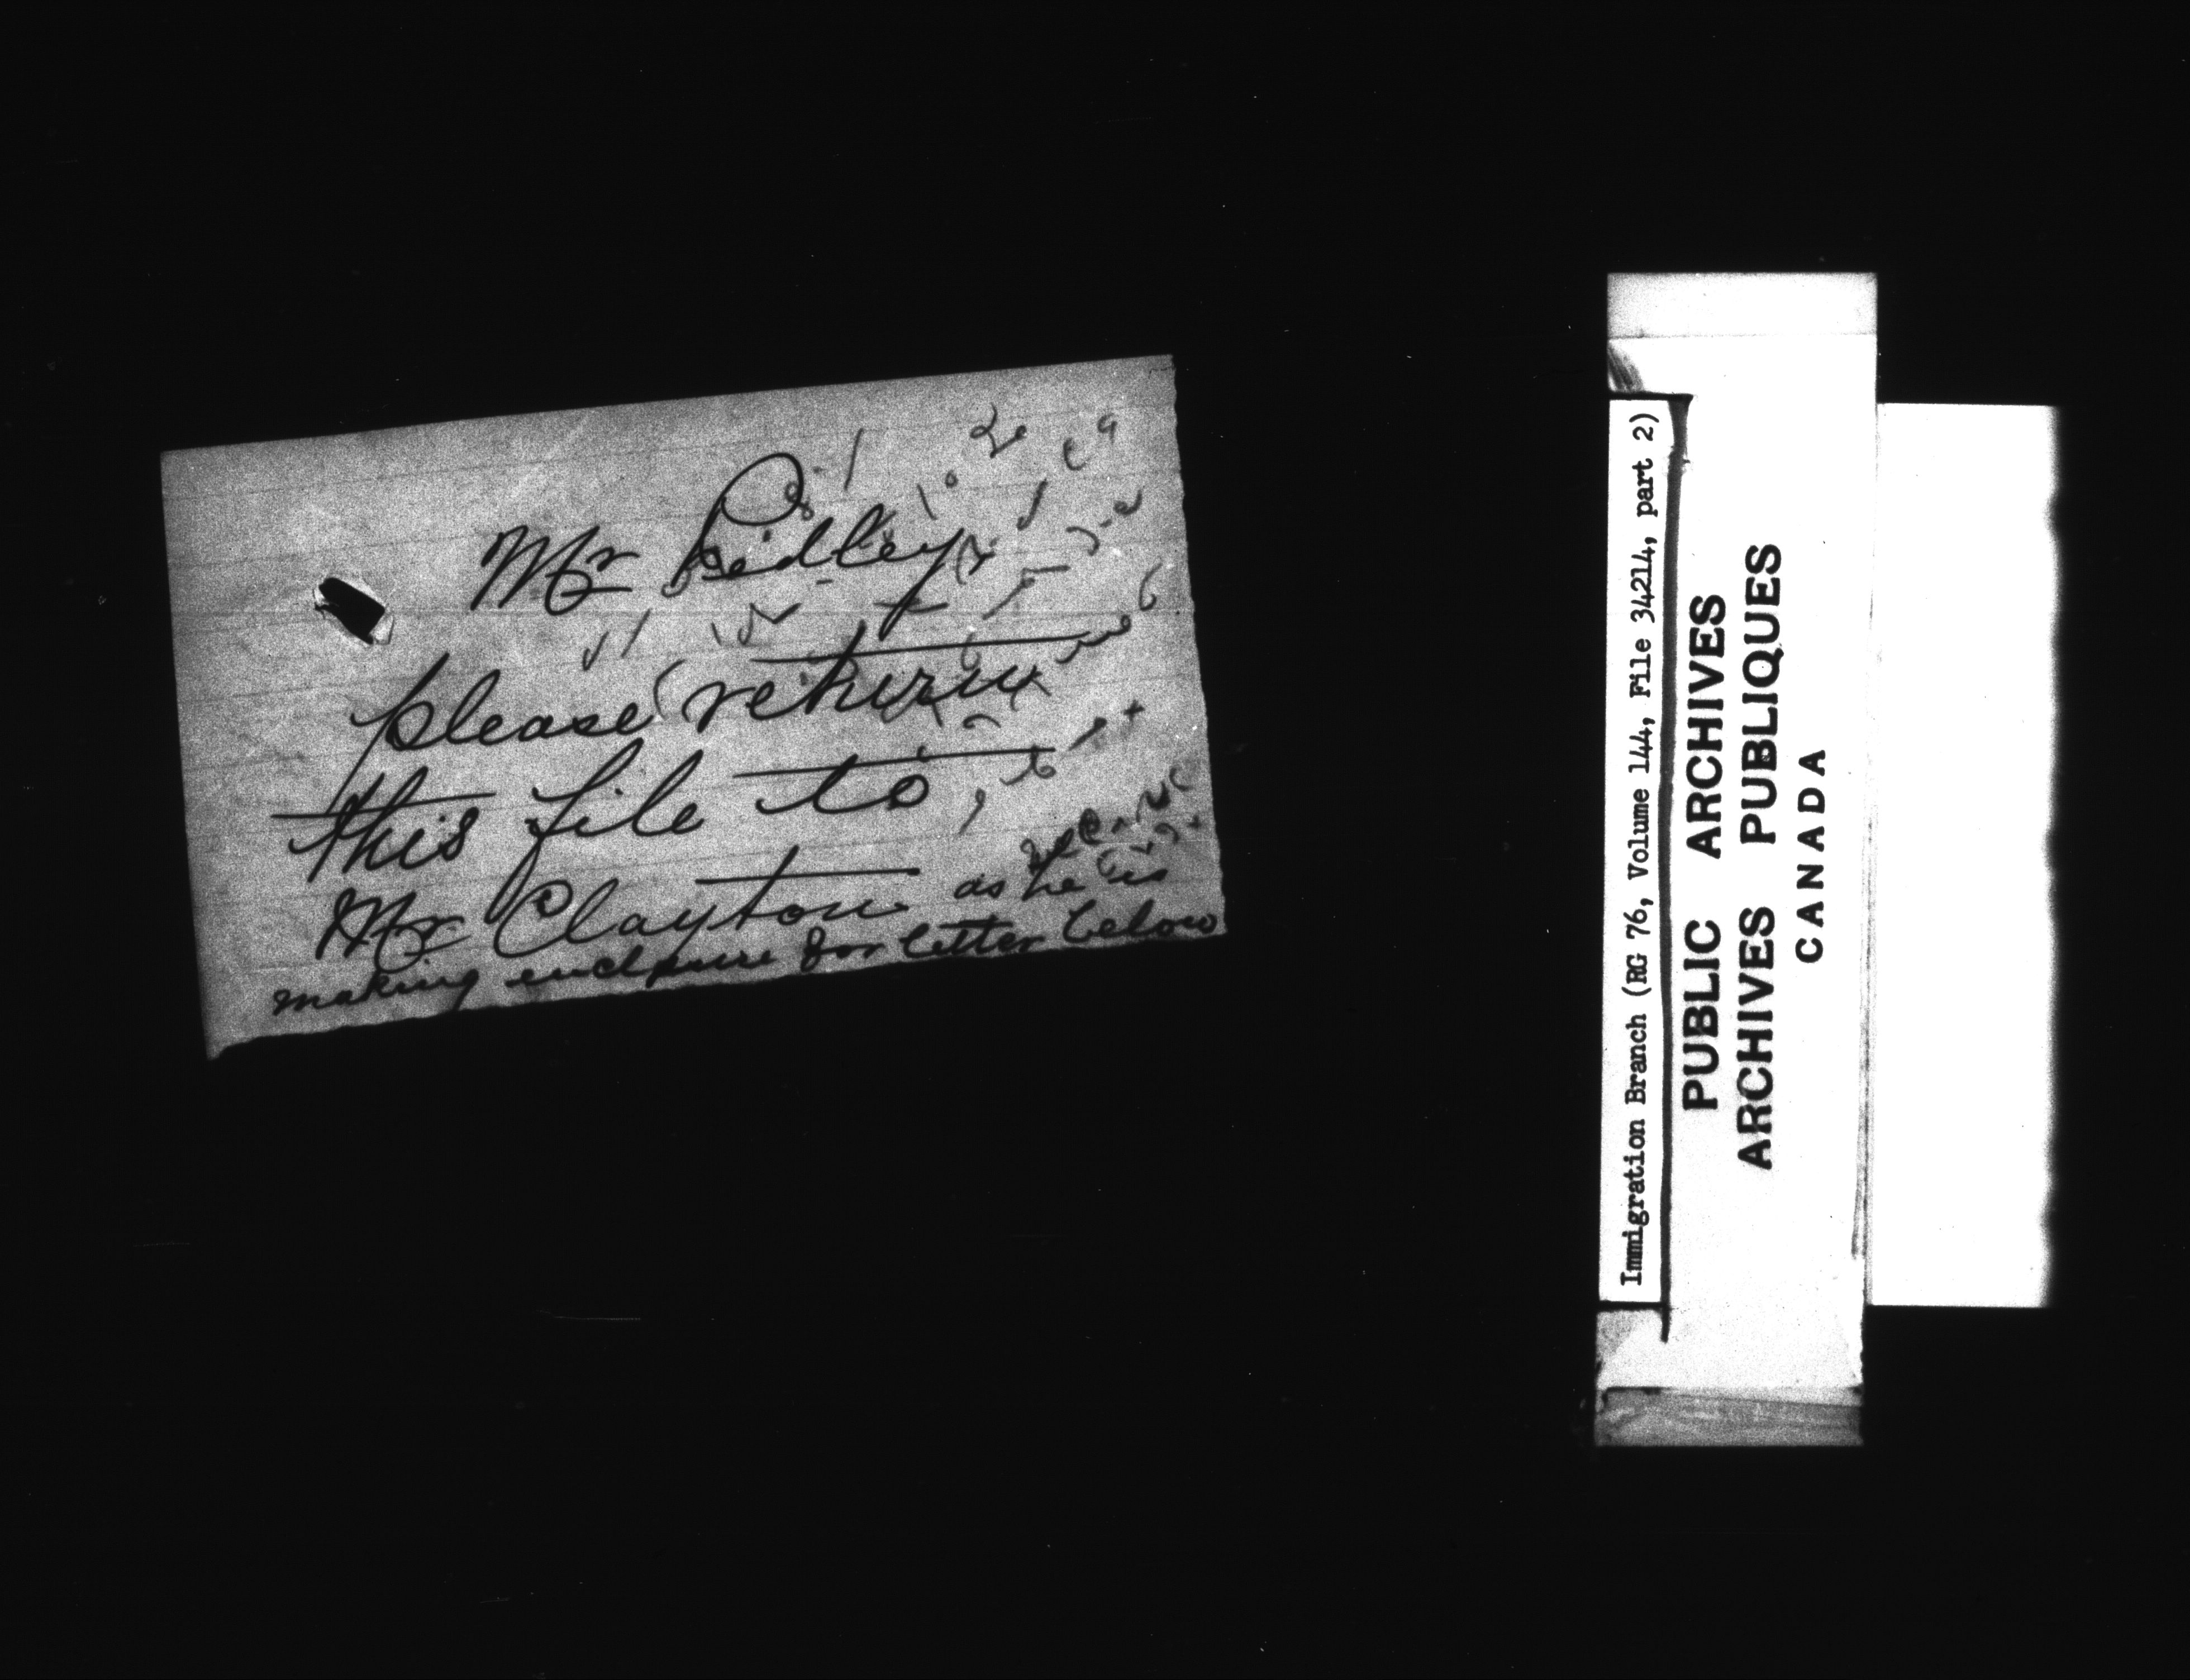 Mr Ridley
please return
this file to
Mr Clayton as he is
making enclosure for letter below
Immigration Branch (RG 76, Volume 144, File 34214, part 2)
PUBLIC ARCHIVES
ARCHIVES PUBLIQUES
CANADA